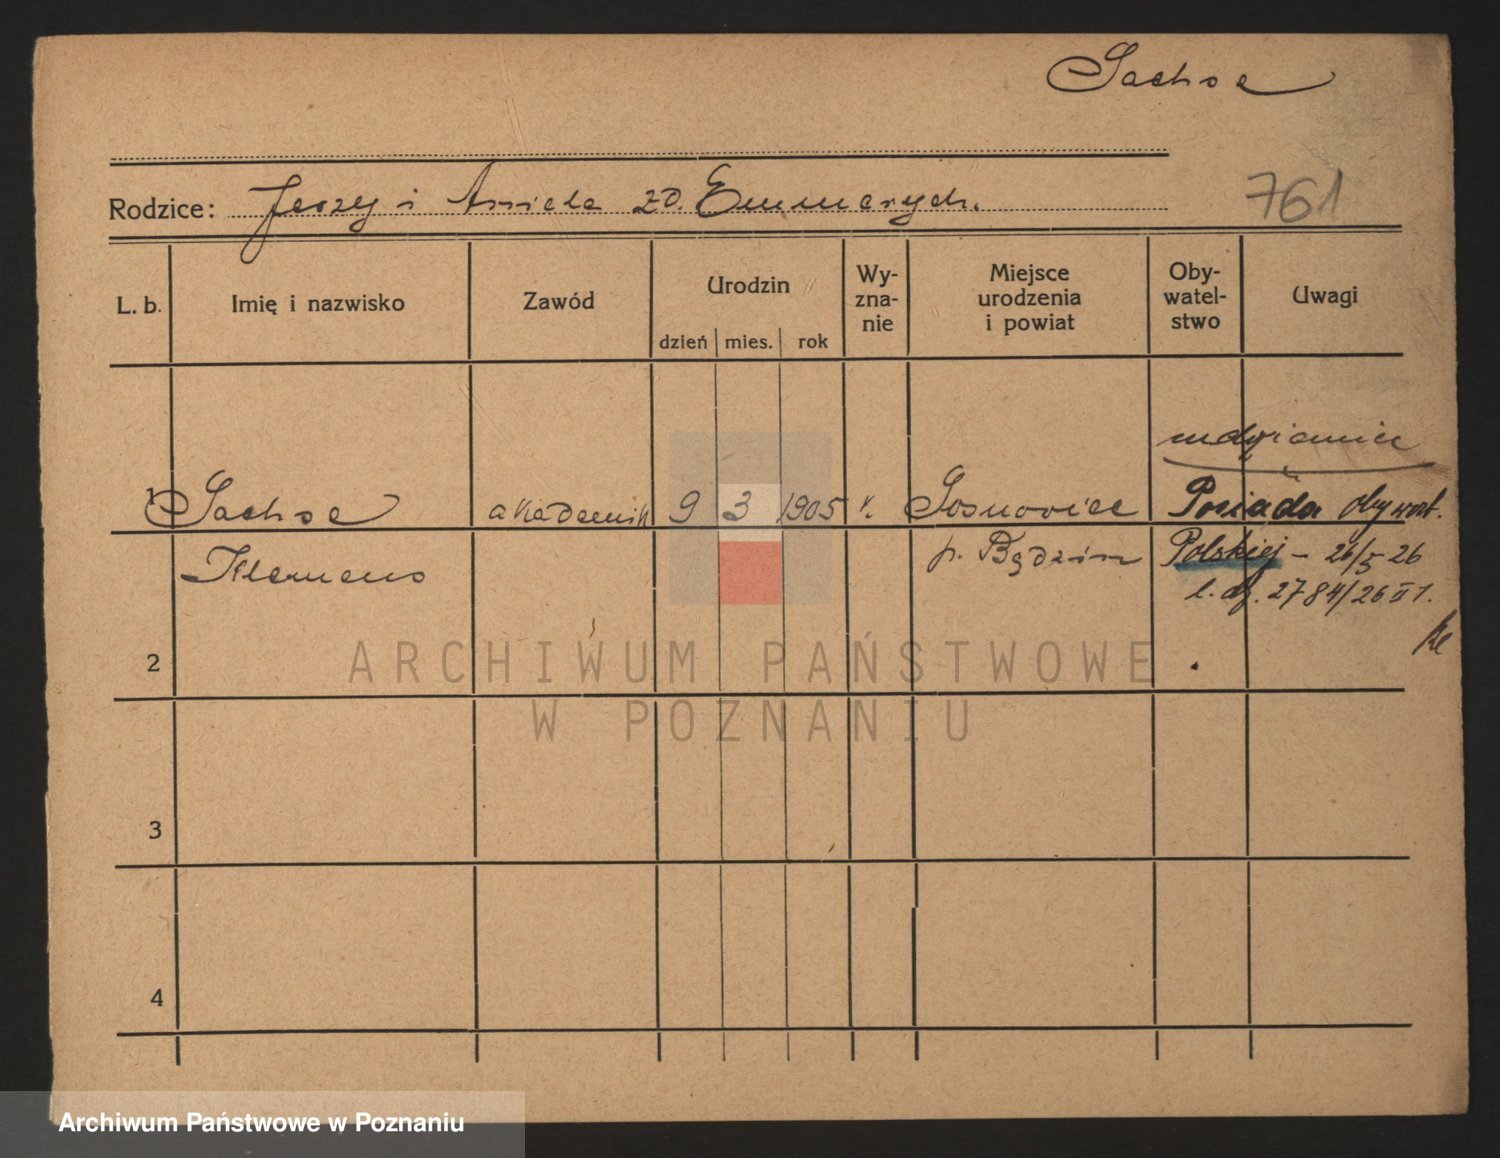 Sachse
Rodzice: Jerzy i Aniela zd. Emmerych.
761
L. b.
Imię i nazwisko
Zawód
Urodzin
dzień mies. rok
Wy-
zna-
nie
Miejsce
urodzenia
i powiat
Oby-
watel-
stwo
Uwagi
1 Sachse akademik 9 3 1905 Sosnowiec Posiada obywat.
Klemens p. Będzin Polskiej – 26/5 26
l. dz. 2784/26 II 1.
2
3
4
ARCHIWUM PAŃSTWOWE
W POZNANIU
Archiwum Państwowe w Poznaniu